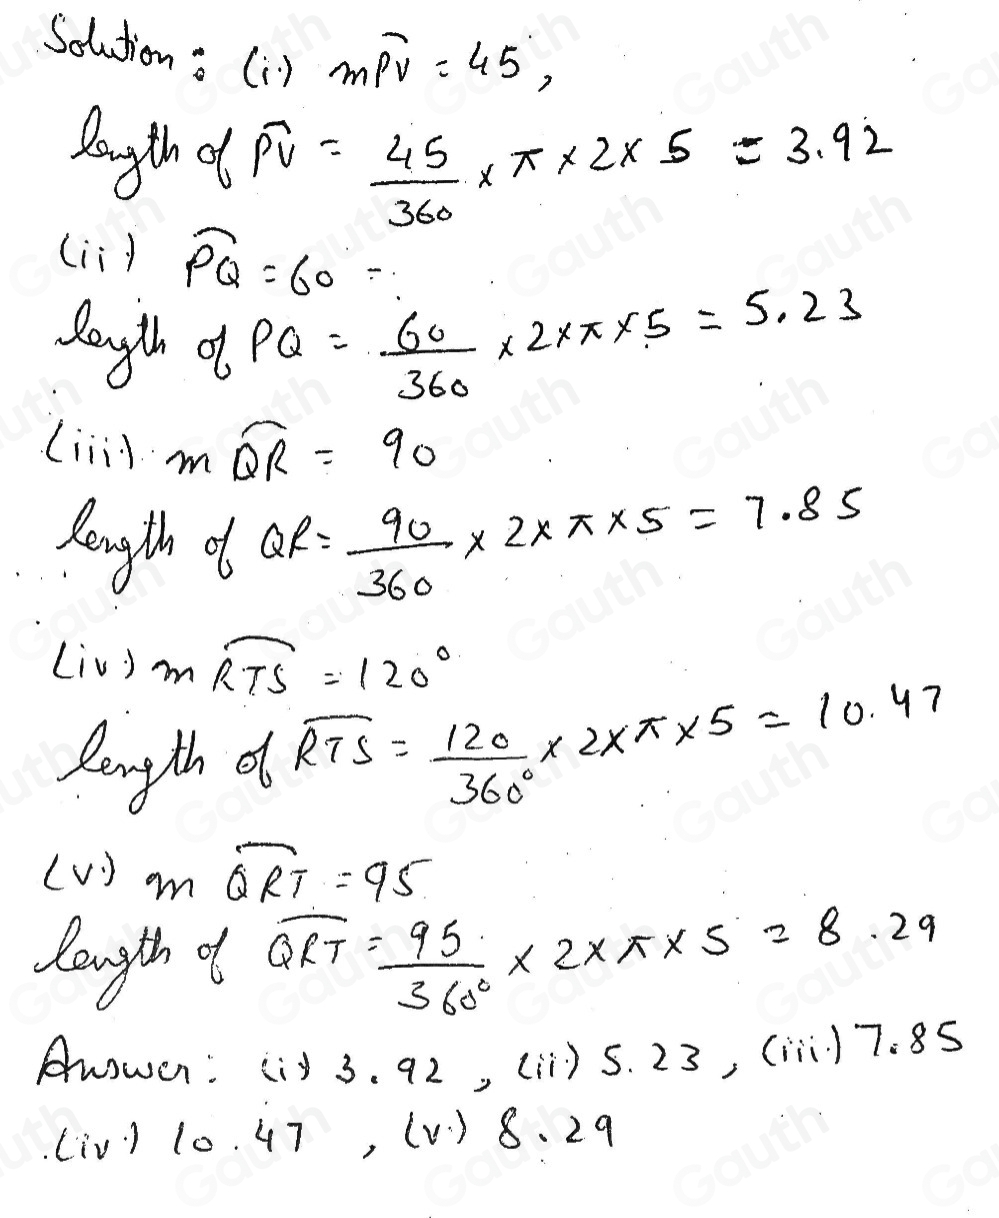 Solution: (i) mPV = 45,
length of PV = 45/360 × π × 2 × 5 = 3.92
(ii) PQ = 60 =
length of PQ = 60/360 × 2 × π × 5 = 5.23
(iii) m QR = 90
length of QR = 90/360 × 2 × π × 5 = 7.85
(iv) m RTS = 120°
length of RTS = 120/360° × 2 × π × 5 = 10.47
(v) m QRT = 95
length of QRT = 95/360° × 2 × π × 5 = 8.29
Answer: (i) 3.92, (ii) 5.23, (iii) 7.85
(iv) 10.47, (v) 8.29
Gauth